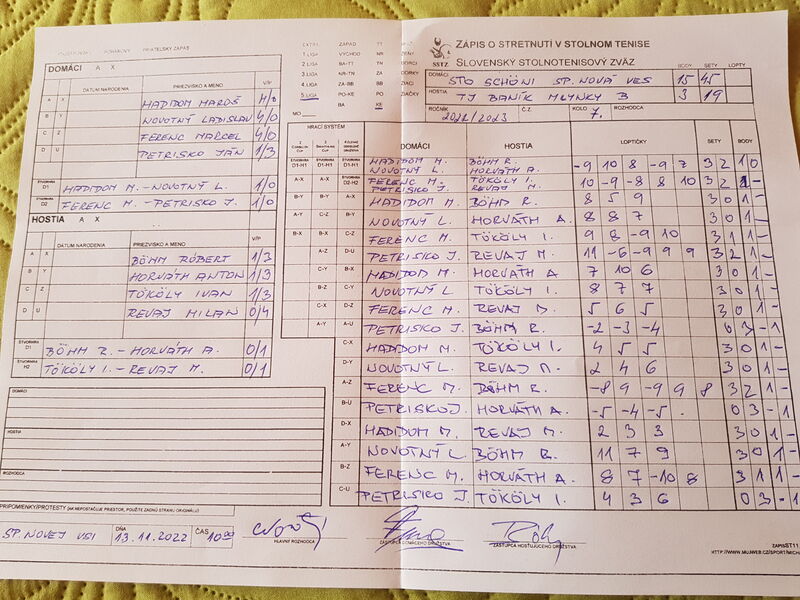 PRIATEĽSKÝ ZÁPAS
DOMÁCI A X
DÁTUM NARODENIA PRIEZVISKO A MENO V/P
A X HADIDOM MAROŠ 4/0
B Y NOVOTNÝ LADISLAV 4/0
C Z FERENC MARCEL 4/0
D U PETRISKO JÁN 1/3
ŠTVORHRA D1 HADIDOM M. - NOVOTNÝ L. 1/0
ŠTVORHRA D2 FERENC M. - PETRISKO J. 1/0
HOSTIA A X
DÁTUM NARODENIA PRIEZVISKO A MENO V/P
A X BÖHM RÓBERT 1/3
B Y HORVÁTH ANTON 1/3
C Z TÖKÖLY IVAN 1/3
D U REVAJ MILAN 0/4
ŠTVORHRA BÖHM R. - HORVÁTH A. 0/1
ŠTVORHRA H2 TÖKÖLY I. - REVAJ M. 0/1
DOMÁCI
HOSTIA
ROZHODCA
PRIPOMIENKY/PROTESTY (AK NEPOSTAČUJE PRIESTOR, POUŽITE ZADNÚ STRANU ORIGINÁLU)
SP. NOVEJ VSI DŇA 13.11.2022 ČAS 10 00
HLAVNÝ ROZHODCA
EXTRA ZÁPAD TT
1 LIGA VÝCHOD NR
2 LIGA BA-TT
3 LIGA NR-TN
4 LIGA ZA-BB
5 LIGA PO-KE
BA KE
MO
SSTZ
ZÁPIS O STRETNUTÍ V STOLNOM TENISE
SLOVENSKÝ STOLNOTENISOVÝ ZVÄZ
BODY SETY LOPTY
DOMÁCI STO SCHÖNI SP. NOVÁ VES 15 45
HOSTIA TJ BANÍK MLYNKY B 3 19
ROČNÍK 2022/2023 Č.Z. KOLO 7. ROZHODCA
HRACÍ SYSTÉM
DOMÁCI HOSTIA LOPTIČKY SETY BODY
D1-H1 D1-H1 D1-H1 HADIDOM M. NOVOTNÝ L. BÖHM R. HORVÁTH A. -9 10 8 -9 7 3 2 1 0
A-X A-X D2-H2 FERENC M. PETRISKO J. TÖKÖLY I. REVAJ M. 10 -9 -8 8 10 3 2 1 -
B-Y B-Y A-X HADIDOM M. BÖHM R. 8 5 9 3 0 1 -
A-Y C-Z B-Y NOVOTNÝ L. HORVÁTH A. 8 8 7 3 0 1 -
B-X B-X C-Z FERENC M. TÖKÖLY I. 9 8 -9 10 3 1 1 -
A-Z D-U PETRISKO J. REVAJ M. 11 -6 -9 9 9 3 2 1 -
C-Y B-X HADIDOM M. HORVÁTH A 7 10 6 3 0 1 -
B-Z C-Y NOVOTNÝ L TÖKÖLY I. 8 7 7 3 0 1 -
C-X D-Z FERENC M. REVAJ M. 5 6 5 3 0 1 -
A-Y A-U PETRISKO J. BÖHM R. -2 -3 -4 0 3 - 1
C-X HADIDOM M. TÖKÖLY I. 4 5 5 3 0 1 -
D-Y NOVOTNÝ L. REVAJ M. 2 4 6 3 0 1 -
A-Z FERENC M. BÖHM R. -8 9 -9 9 8 3 2 1 -
B-U PETRISKO J. HORVÁTH A. -5 -4 -5 0 3 - 1
D-X HADIDOM M. REVAJ M. 2 3 3 3 0 1 -
A-Y NOVOTNÝ L. BÖHM R. 11 7 9 3 0 1 -
B-Z FERENC M. HORVÁTH A. 8 7 -10 8 3 1 1 -
C-U PETRISKO J. TÖKÖLY I. 4 3 6 0 3 - 1
ZÁSTUPCA DOMÁCEHO DRUŽSTVA
ZÁSTUPCA HOSŤUJÚCEHO DRUŽSTVA
ZAPISST11